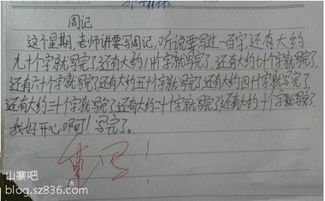 周记
这个星期,老师讲要写周记,听说要写过一百字,还有大约
九十个字就写完了,还有大约八十个字就写完了,还有大约七十个字就写完了,
还有六十个字就写完了还有大约五十个字就写完了,还有大约四十字就写完了,
还有大约三十个字就写完了还有大约二十个字就写完了还有大约十个字就写完了,
我好开心啊!写完了。
重写!
山寨吧
blog.sz836.com